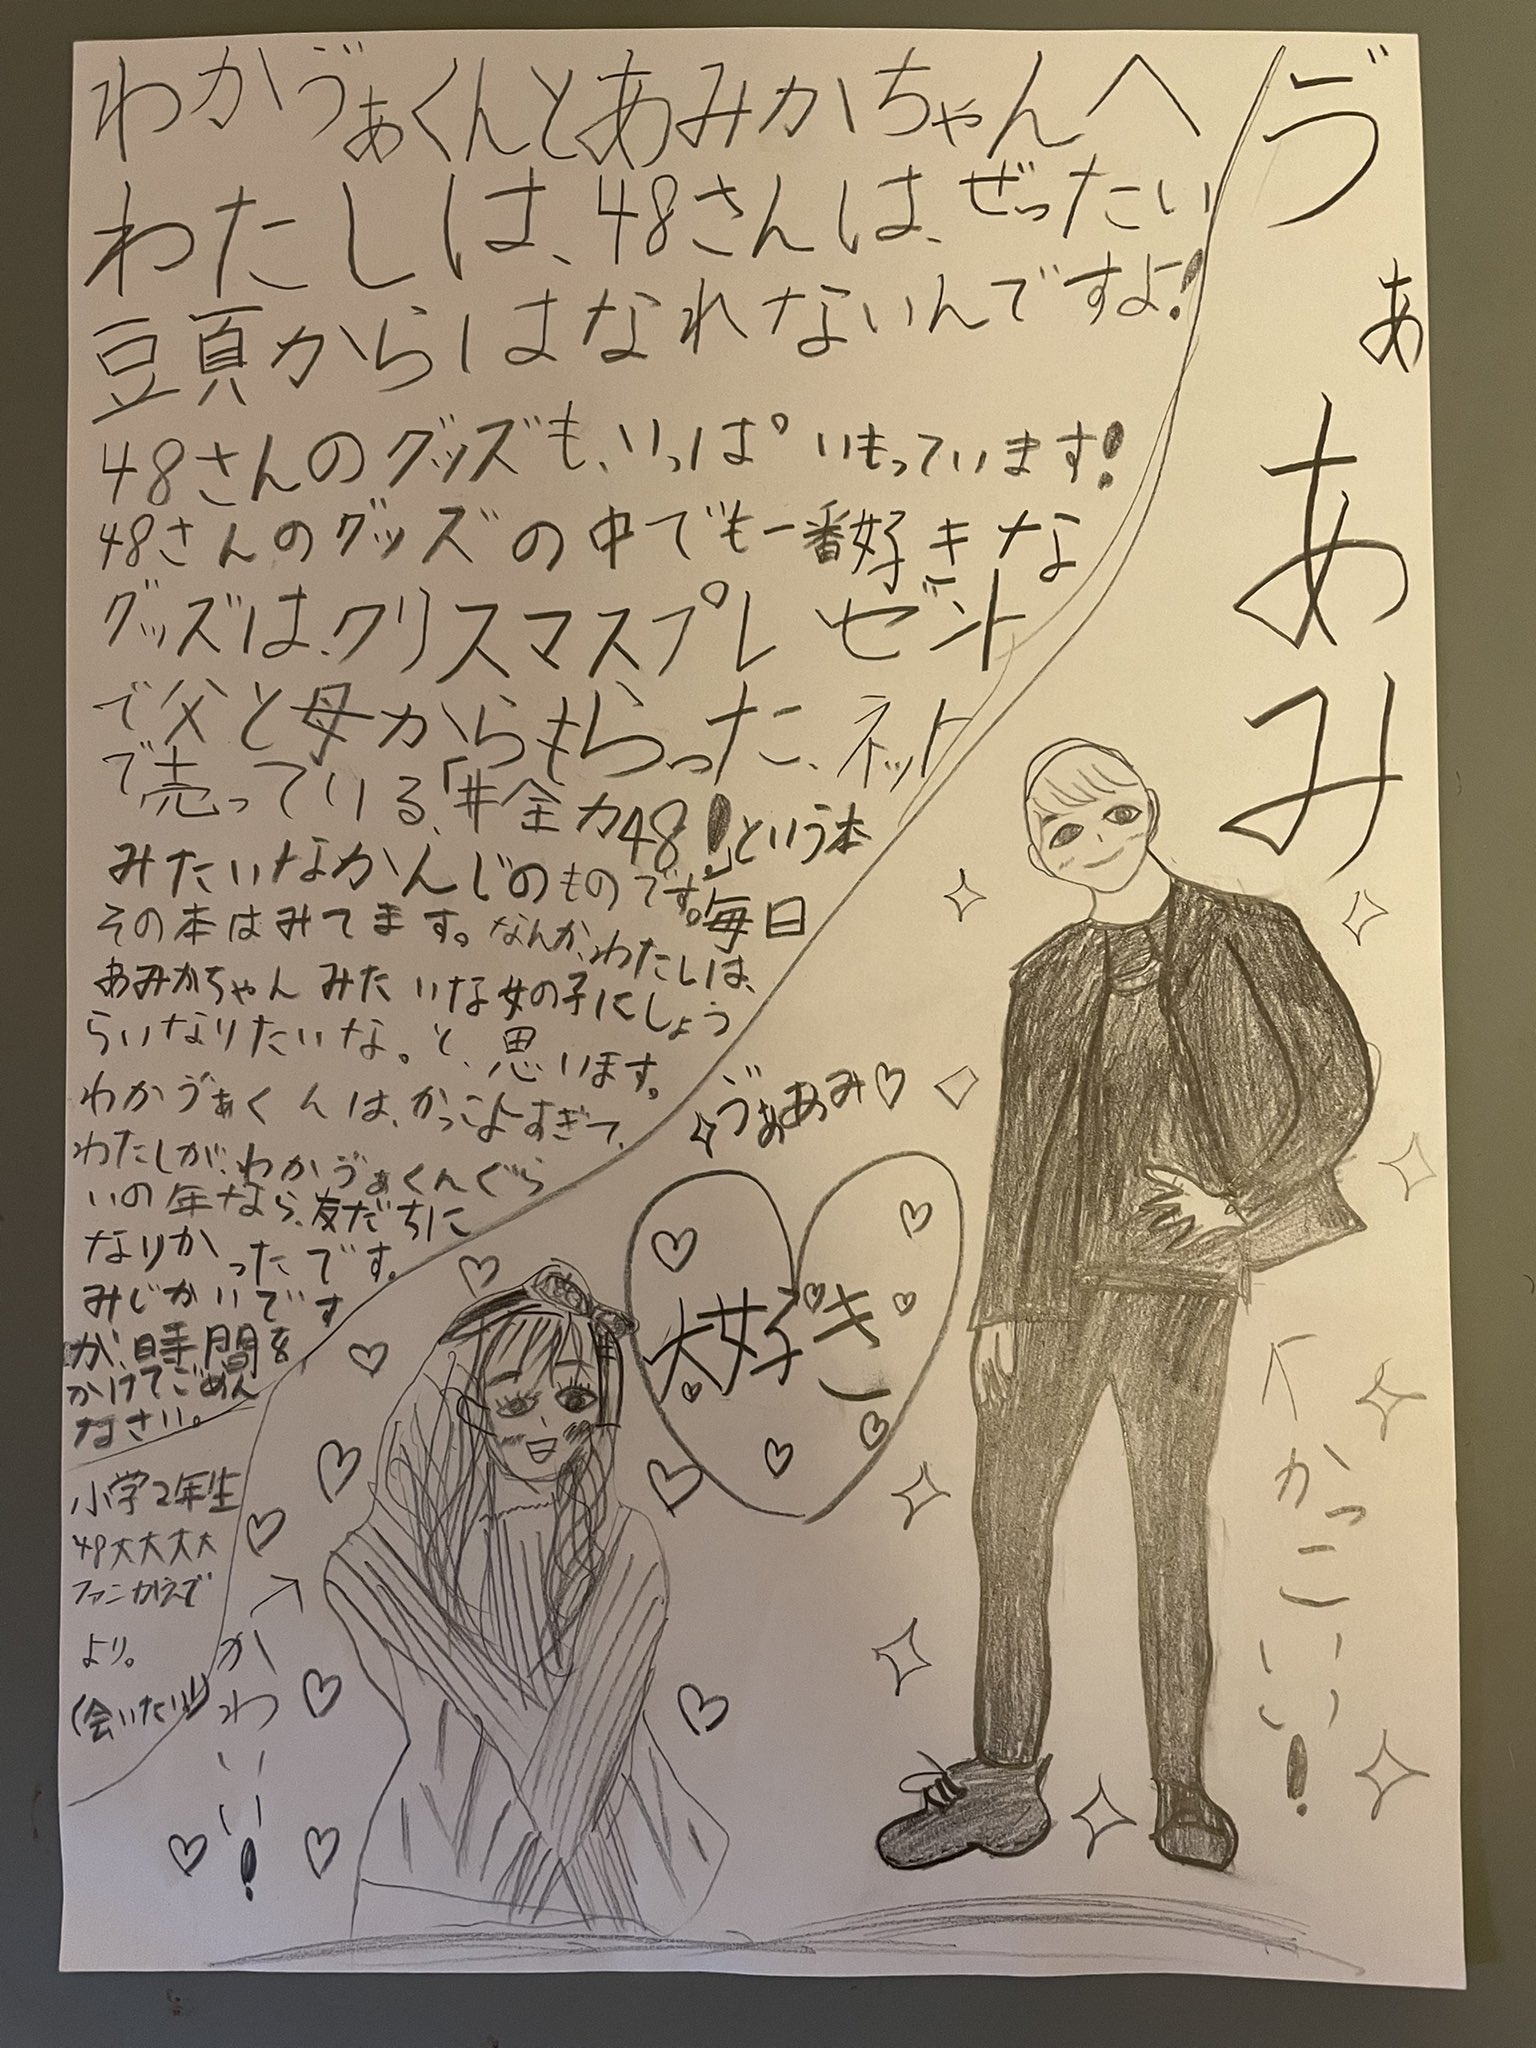 わかゔぁくんとあみかちゃんへ
わたしは、48さんは、ぜったい
頭からはなれないんですよ!
48さんのグッズも、いっぱいもっています!
48さんのグッズの中でも一番好きな
グッズは、クリスマスプレゼント
で父と母からもらった、ネット
で売っている、「#全力48!」という本
みたいなかんじのものです。毎日
その本はみてます。なんか、わたしは、
あみかちゃんみたいな女の子にしょう
らいなりたいな。と、思います。
わかゔぁくんは、かっこよすぎて、
わたしが、わかゔぁくんぐら
いの年なら、友だちに
なりかったです。
みじかいです
が、時間を
かけてごめん
なさい。
小学2年生
48大大大大
ファンかえで
より。
(会いたい!)
ゔぁあみ
ゔぁあみ♡
大好き
かわいい!
かっこいい!